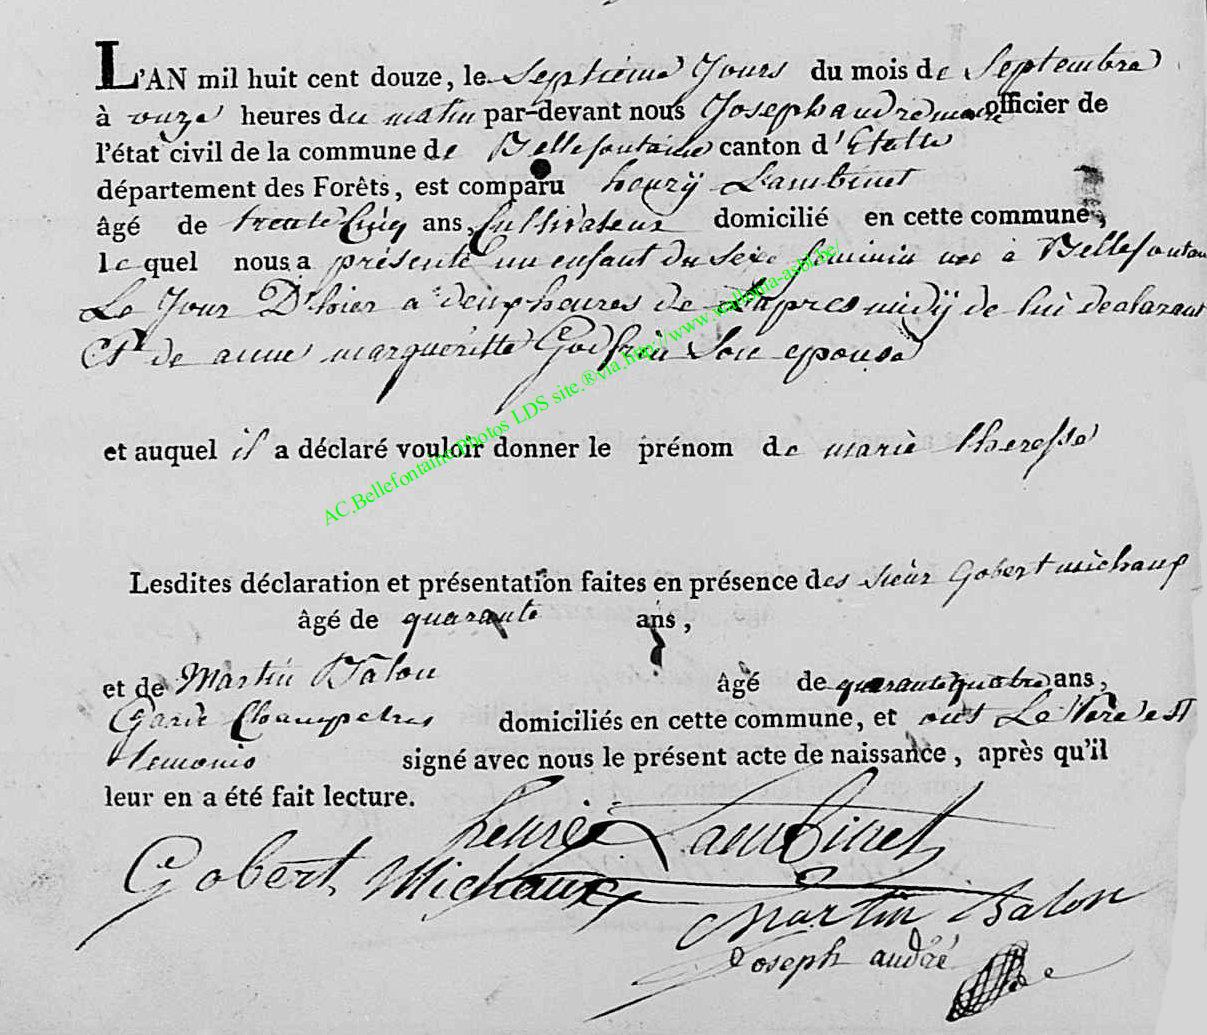 L'AN mil huit cent douze, le Septieme Jours du mois de Septembre
à onze heures du matin par-devant nous Joseph andre maire officier de
l'état civil de la commune de Bellefontaine canton d'Etalle
département des Forêts, est comparu henrÿ Lambinet
âgé de trente Cinq ans, Cultivateur domicilié en cette commune,
lequel nous a présenté un enfant du sexe feminin nee à Bellefontain
Le Jour D'hier a deux heures de L'apres midÿ de lui declarant
Et de anne margueritte Godfrin Son epouse
et auquel il a déclaré vouloir donner le prénom de marie theresse
Lesdites déclaration et présentation faites en présence des sieur Gobert michaux
âgé de quarante ans,
et de Martin Balon âgé de quarante quatre ans,
Garde Champetres domiciliés en cette commune, et ont Le Pere est
temoins signé avec nous le présent acte de naissance, après qu'il
leur en a été fait lecture.
henri Lambinet
Gobert Michaux
Martin Balon
Joseph andré
AC.Bellefontaine.Photos LDS site.®via.http://www.wallonia-asbl.be/